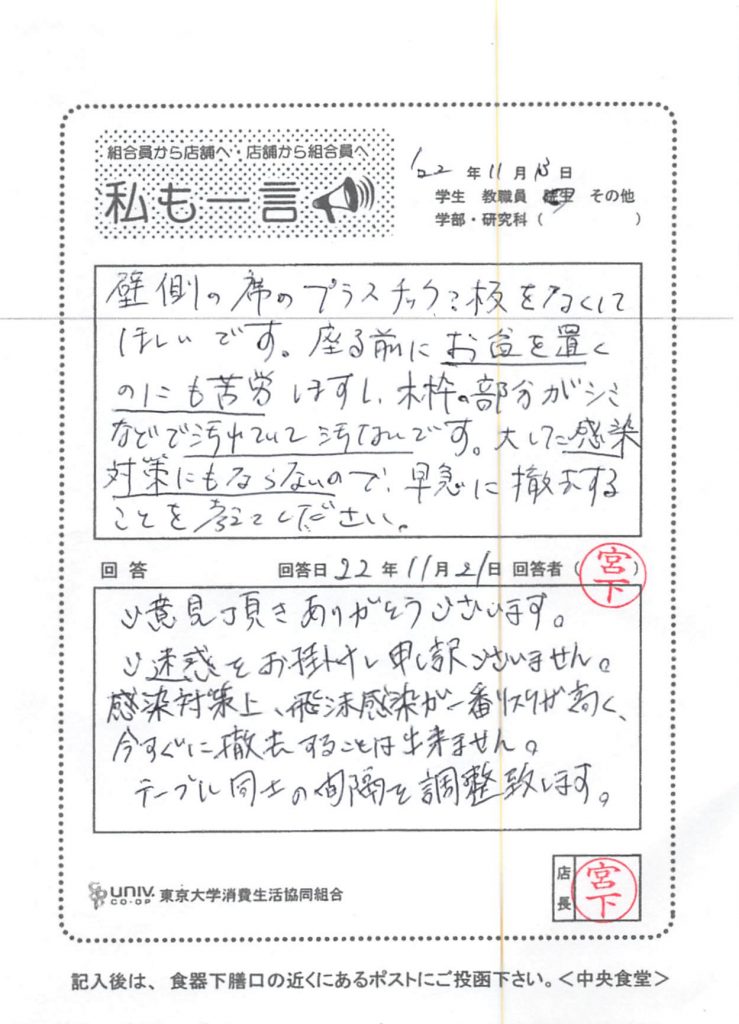 組合員から店舗へ・店舗から組合員へ
私も一言
'22 年 11 月 18 日
学生 教職員 院生 その他
学部・研究科（　　　）
壁側の席のプラスチックの板をなくして
ほしいです。座る前にお盆を置く
のにも苦労しますし、木枠の部分がシミ
などで汚れていて汚ないです。大した感染
対策にもならないので、早急に撤去する
ことを考えてください。
回答 回答日 22 年 11 月 21 日 回答者（宮下）
ご意見頂きありがとうございます。
ご迷惑をお掛けし申し訳ございません。
感染対策上、飛沫感染が一番リスクが高く、
今すぐに撤去することは出来ません。
テーブル同士の間隔を調整致します。
UNIV. CO-OP 東京大学消費生活協同組合
店長 宮下
記入後は、食器下膳口の近くにあるポストにご投函下さい。＜中央食堂＞